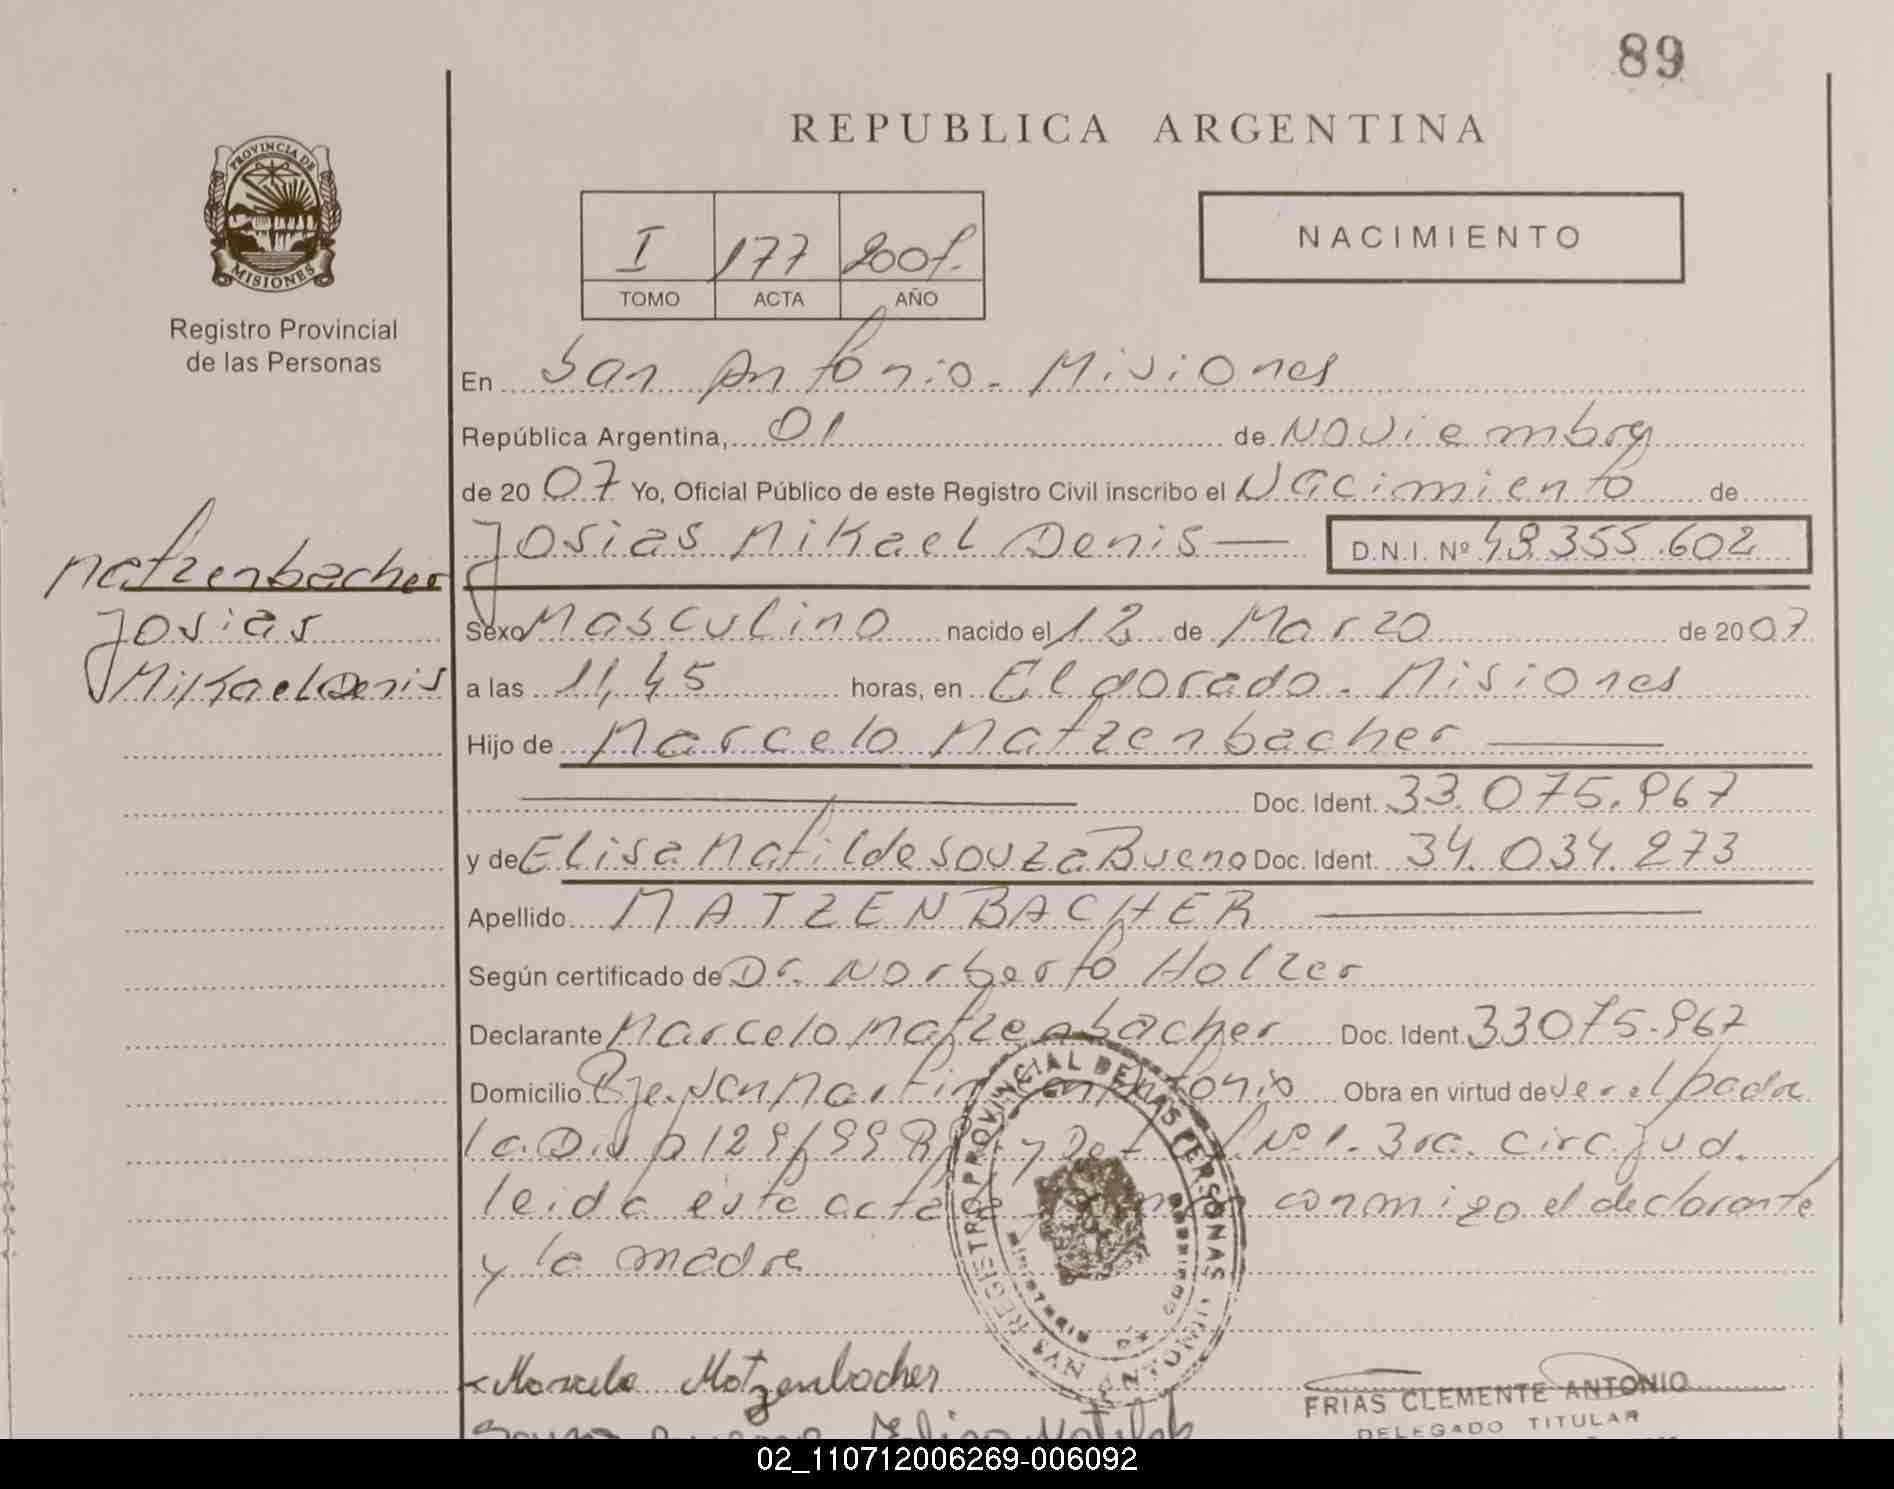 89
REPUBLICA ARGENTINA
PROVINCIA DE
MISIONES
Registro Provincial
de las Personas
I 177 2007.
TOMO ACTA AÑO
NACIMIENTO
En San Antonio - Misiones
República Argentina, 01 de Noviembre
de 20 07 Yo, Oficial Público de este Registro Civil inscribo el Nacimiento de
Josias Mikael Denis — D.N.I. Nº 48.355.602
Matzenbacher
Josias
Mikael Denis
Sexo Masculino nacido el 12 de Marzo de 20 07
a las 11,45 horas, en Eldorado - Misiones
Hijo de Marcelo Matzenbacher —
Doc. Ident. 33.075.967
y de Elisa Matilde Souza Bueno Doc. Ident. 34.034.273
Apellido MATZENBACHER —
Según certificado de Dr. Norberto Holzer
Declarante Marcelo Matzenbacher Doc. Ident. 33075.967
Domicilio Bje. San Martin San Antonio Obra en virtud de ser el padre
la Disp 129/99 y Def Nº 1. 3ra. Circ. Jud.
leida este acta la firman conmigo el declarante
y la madre
REGISTRO PROVINCIAL DE LAS PERSONAS
SAN ANTONIO
Marcelo Matzenbacher
Elisa Matilde
FRIAS CLEMENTE ANTONIO
DELEGADO TITULAR
02_110712006269-006092